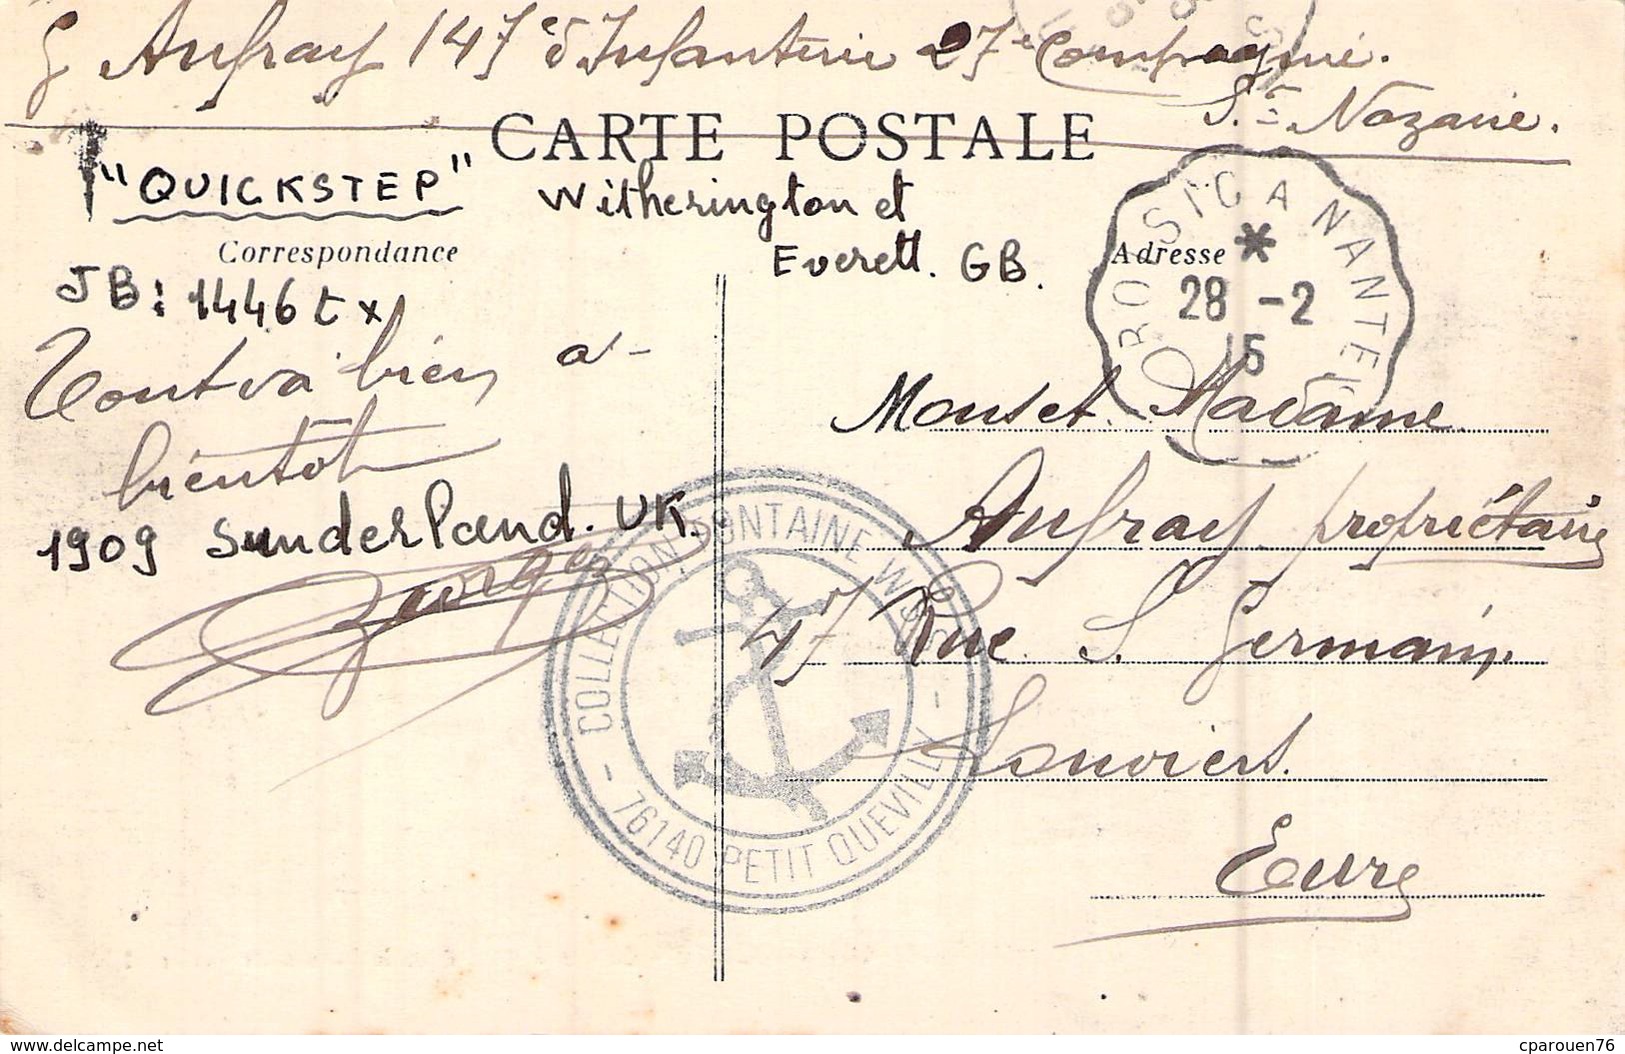 G Aufray 147e d'Infanterie 27e Compagnie.
St Nazaire.
CARTE POSTALE
"QUICKSTEP"
Witherington et
Everett. GB.
Correspondance
Adresse
JB: 1446 tx
ROSICANANTES
28 -2
15
Tout va bien a-
bientôt
1909 Sunderland. UK.
Georges
Mons et Madame
Aufray propriétaire
47 Rue S. Germain
Louviers.
Eure
COLLECTION FONTAINE
- 76140 PETIT QUEVILLY -
www.delcampe.net
cparouen76